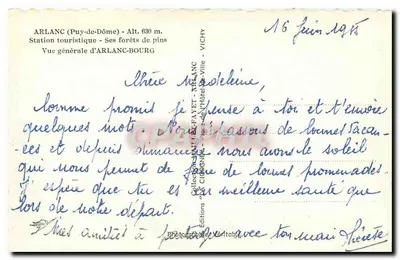 ARLANC (Puy-de-Dôme) - Alt. 630 m.
Station touristique - Ses forêts de pins
Vue générale d'ARLANC-BOURG
16 Juin 195
Chère Madeleine,
Comme promis je pense à toi et t'envoie
quelques mots. Nous passons de bonnes vacan-
ces et depuis dimanche nous avons le soleil
qui nous permet de faire de bonnes promenades.
J'espère que tu es en meilleure santé que
lors de notre départ.
Mes amitiés à partager avec ton mari
VICHY